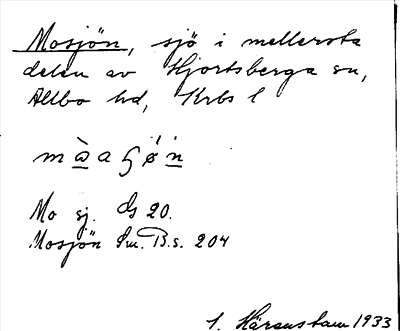 Mosjön, sjö i mellersta
delen av Hjortsberga sn,
Allbo hd, Krbs l
Mo sj. GS 20.
Mosjön Sm. B. s. 204
1. Härenstam 1933